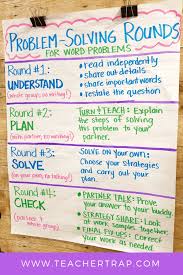 PROBLEM-SOLVING ROUNDS
FOR WORD PROBLEMS
Round #1:
UNDERSTAND
(whole group, no writing!)
• read independently
• share out details
• share important words
• restate the question
Round #2:
PLAN
(partners, no writing!)
TURN & TEACH: Explain
the steps of solving
this problem to your
partner.
Round #3:
SOLVE
(on your own, no talking!)
SOLVE ON YOUR OWN:
Choose your strategies
and carry out your
plan.
Round #4:
CHECK
(partners → whole group)
• PARTNER TALK: Prove
your answer to your buddy
• STRATEGY SHARE: Look
at work samples, together
• FINAL FIX-UPS: Correct
your work as needed
WWW.TEACHERTRAP.COM